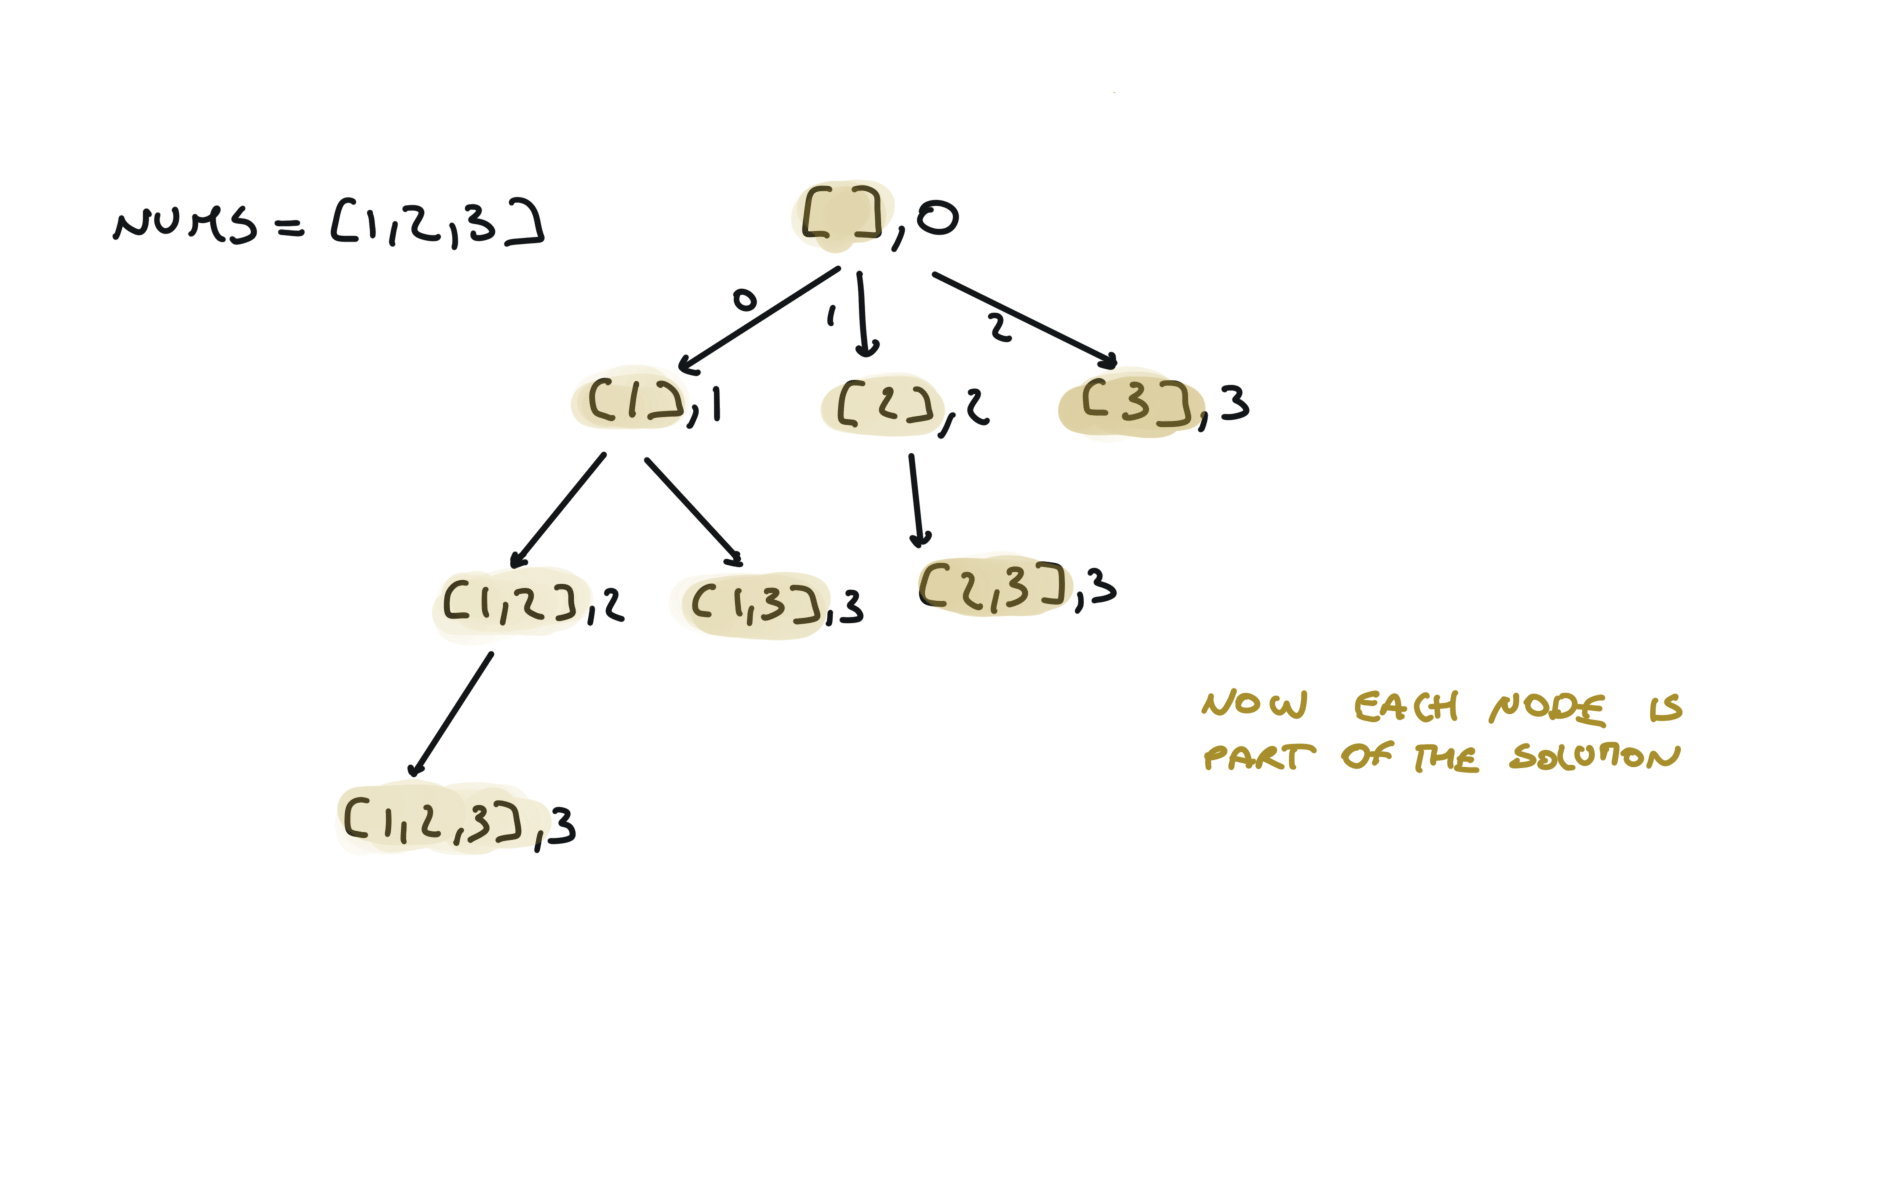 NUMS = [1,2,3]
[ ],0
0
1
2
[1],1
[2],2
[3],3
[1,2],2
[1,3],3
[2,3],3
NOW EACH NODE IS
PART OF THE SOLUTION
[1,2,3],3